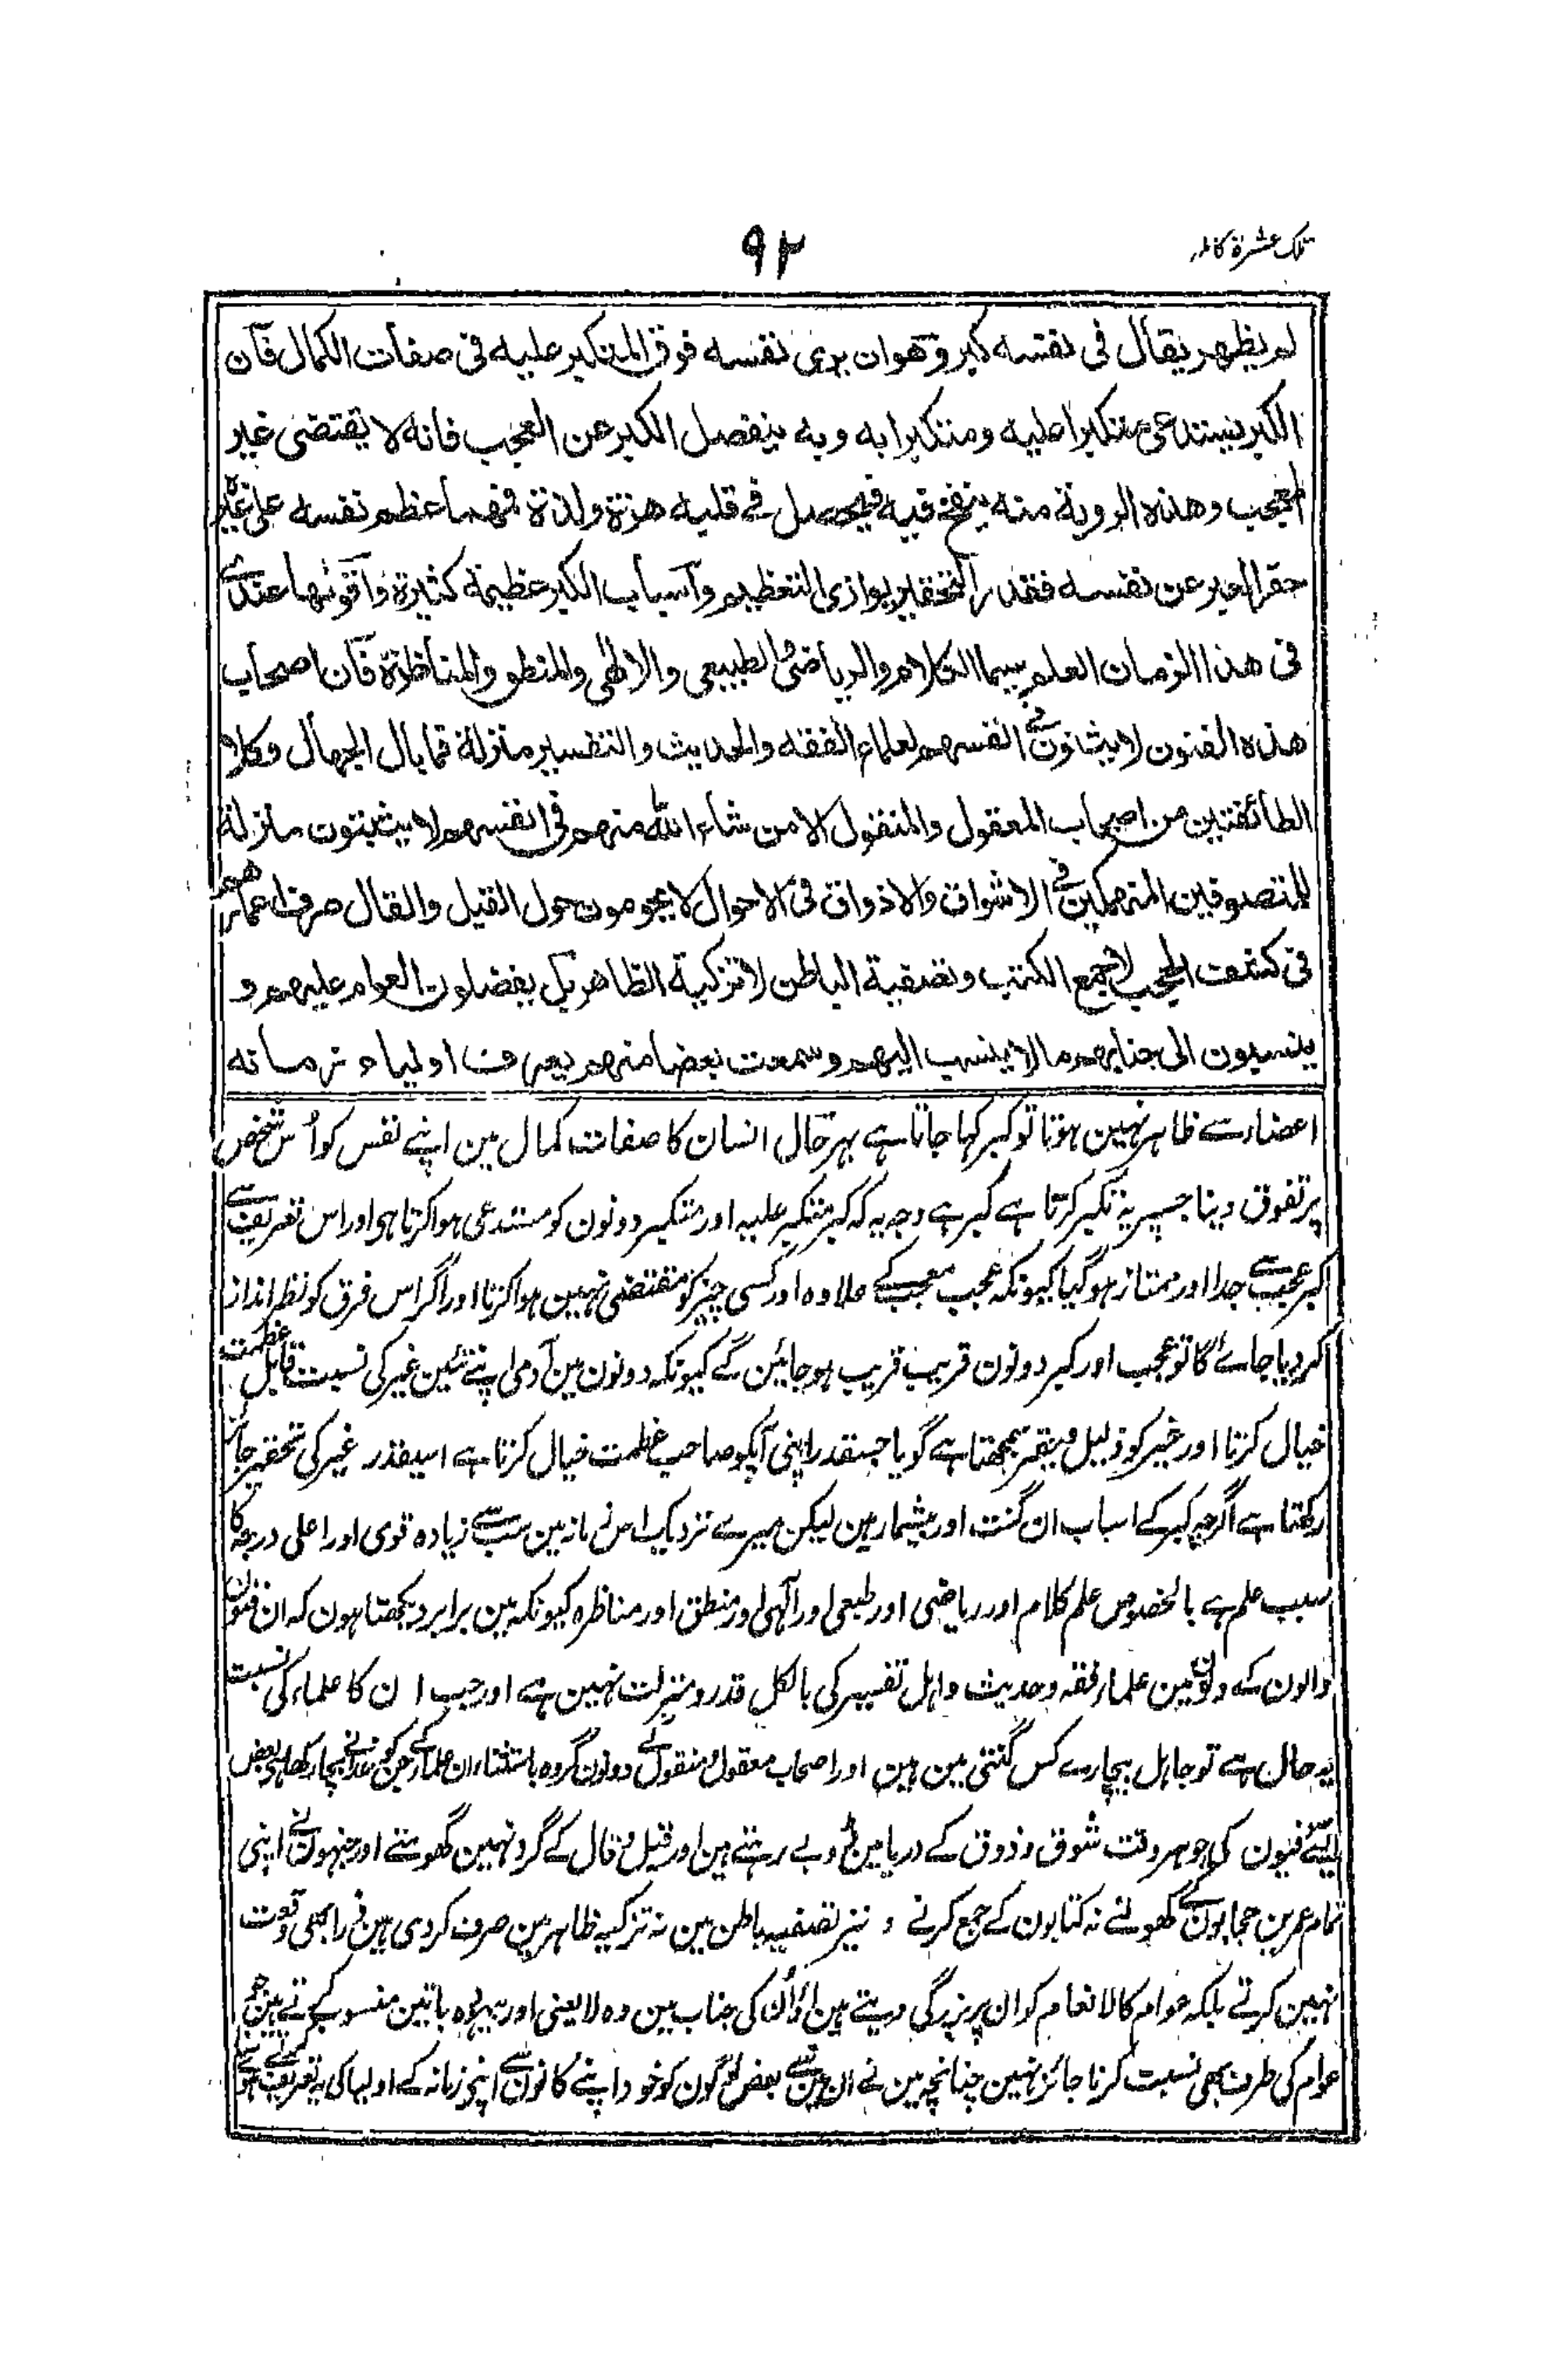 تلک عشرۃ کاملہ
۹۲
لم يظهر يقال فى نفسه كبر وهو ان يرى نفسه فوق المتكبر عليه فى صفات الكمال فان
الكبر يستدعى متكبرا عليه ومتكبرا به وبه ينفصل الكبر عن العجب فانه لا يقتضى غير
المعجب وهذه الروية منه ينفخ فيه فيحصل فے قلبه هزة ولذة فمهما عظم نفسه على غيره
حقر الغير عن نفسه فقدر التحقير يوازى التعظيم واسباب الكبر عظيمة كثيرة واقوىها عندے
فى هذا الزمان العلم سيما الكلام والرياضى والطبيعى والالهى والمنطق والمناظرة فان اصحاب
هذه الفنون لا يثبتون فے انفسهم لعلماء الفقه والحديث والتفسير منزلة فما بال الجهال وكلا
الطائفتين من اصحاب المعقول والمنقول الا من شاء الله منهم فى انفسهم لا يثبتون منزلة
للمتصوفين المنهمكين فے الاشواق والاذواق فى الاحوال لا يحومون حول القيل والقال صرفوا عمارهم
فى كشف الحجب لا جمع الكتب وتصفية الباطن لا تزكية الظاهر بل يفضلون العوام عليهم و
ينسبون الى جنابهم ما لا ينسب اليهم وسمعت بعضا منهم يعرف اولياء زمانه
اعضاء سے ظاہر نہین ہوتا تو کبر کہا جاتا ہے بہر حال انسان کا صفات کمال مین اپنے نفس کو اُس شخص
پر تفوق دینا جسپر یہ تکبر کرتا ہے کبر ہے وجہ یہ کہ کبر متکبر علیہ اور متکبر دونون کو مستدعی ہوا کرتا ہی اور اس تعریف سے
کبر عجب سے جدا اور ممتاز ہو گیا کیونکہ عجب معجب کے علاوہ اور کسی چیز کو مقتضی نہین ہوا کرتا اور اگر اس فرق کو نظر انداز
کر دیا جاے گا تو عجب اور کبر دونون قریب قریب ہو جائین گے کیونکہ دونون مین آدمی اپنے تئین غیر کی نسبت قابل عظمت
خیال کرتا اور غیر کو ذلیل و حقیر سمجھتا ہے گویا جسقدر اپنی آپکو صاحب عظمت خیال کرتا ہے اسیقدر غیر کی تحقیر جائز
رکھتا ہے اگرچہ کبر کے اسباب ان گنت اور بیشمار ہین لیکن میرے نزدیک اس زمانہ مین سب سے زیادہ قوی اور اعلی درجہ کا
سبب علم ہے بالخصوص علم کلام اور ریاضی اور طبعی اور الٰہی اور منطق اور مناظرہ کیونکہ مین برابر دیکھتا ہون کہ ان فنون
والون کے دلون مین علماء فقہ وحدیث واہل تفسیر کی بالکل قدر و منزلت نہین ہے اور جب ان کا علماء کی نسبت
یہ حال ہے تو جاہل بیچارے کس گنتی مین ہین اور اصحاب معقول و منقول کے دونون گروہ باستثناء ان علما کے جن کو خدا نے بچا رکھا ہی بعض
ایسے کی جو ہر وقت شوق و ذوق کے دریا مین ڈوبے رہتے ہین اور قیل و قال کے گرد نہین گھومتے اور جنہون نے اپنی
تمام عمرین حجابون کے کھولنے نہ کتابون کے جمع کرنے و نیز تصفیہ باطن مین نہ تزکیہ ظاہر مین صرف کر دی ہین ذرا بھی وقعت
نہین کرتے بلکہ عوام کالانعام کو ان پر بزرگی دیتے ہین اور اُن کی جناب مین وہ لا یعنی اور بیہودہ باتین منسوب کرتے ہین جنکی
عوام کی طرف بھی نسبت کرنا جائز نہین چنانچہ مین نے ان مین سے بعض لوگون کو خود اپنے کانون سے اپنی زمانہ کے اولیا کی یہ تعریف کرتے ہوے